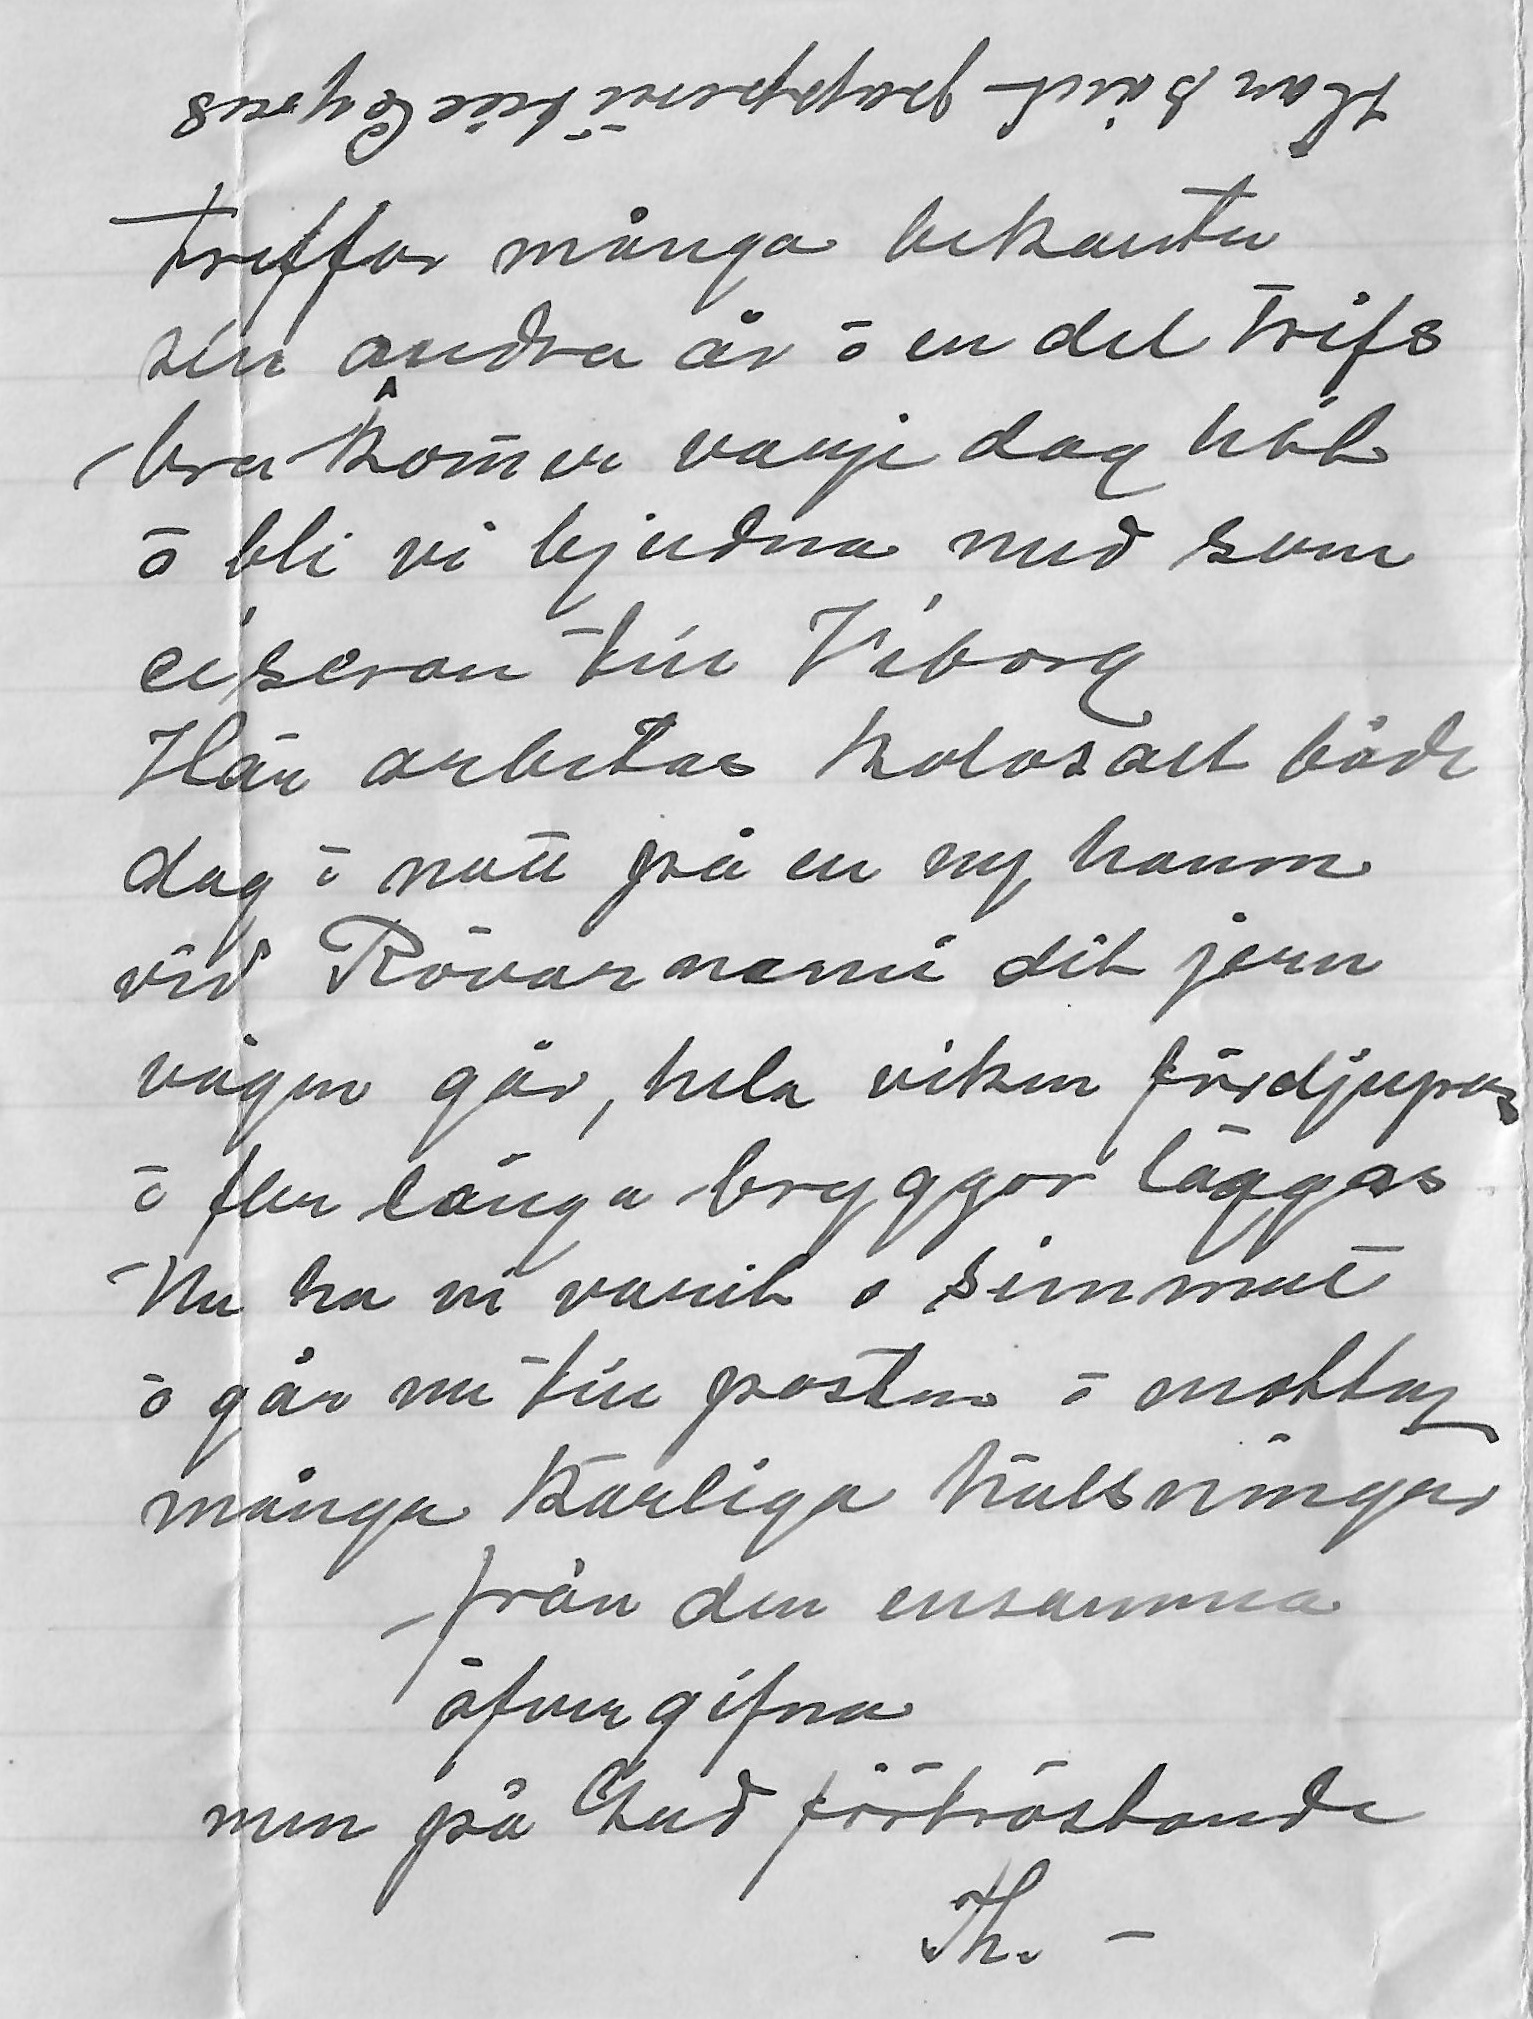 Har sänt papperni till Cygnus
träffar många bekanta
sen andra år ō en del trifs
bra komer varje dag hit
ō bli vi bjudna med som
ciseron till Viborg
Här arbetas kolosalt både
dag ō natt på en ny hamn
vid Rövarnemi dit jern
vägen går, hela viken fördjupas
ō fler långa bryggor läggas
Nu ha vi varit o simmat
ō går nu till posten ō mottag
många kärliga hälsningar
från den ensamma
öfvergifna
men på Gud förtröstande
Th. –